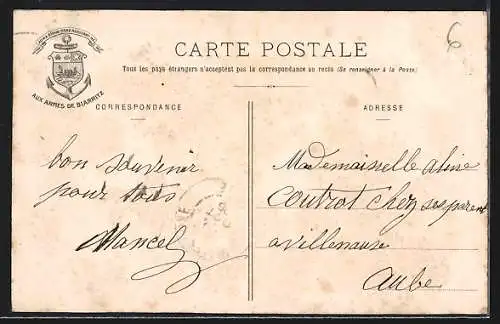 CARTE POSTALE
Tous les pays étrangers n'acceptent pas la correspondance au recto (Se renseigner à la Poste)
AUX ARMES DE BIARRITZ
CORRESPONDANCE
ADRESSE
6
bon souvenir
pour tous
Mancel
Mademaisselle aline
Coutrot chez ses parent
a villenauxe
Aube